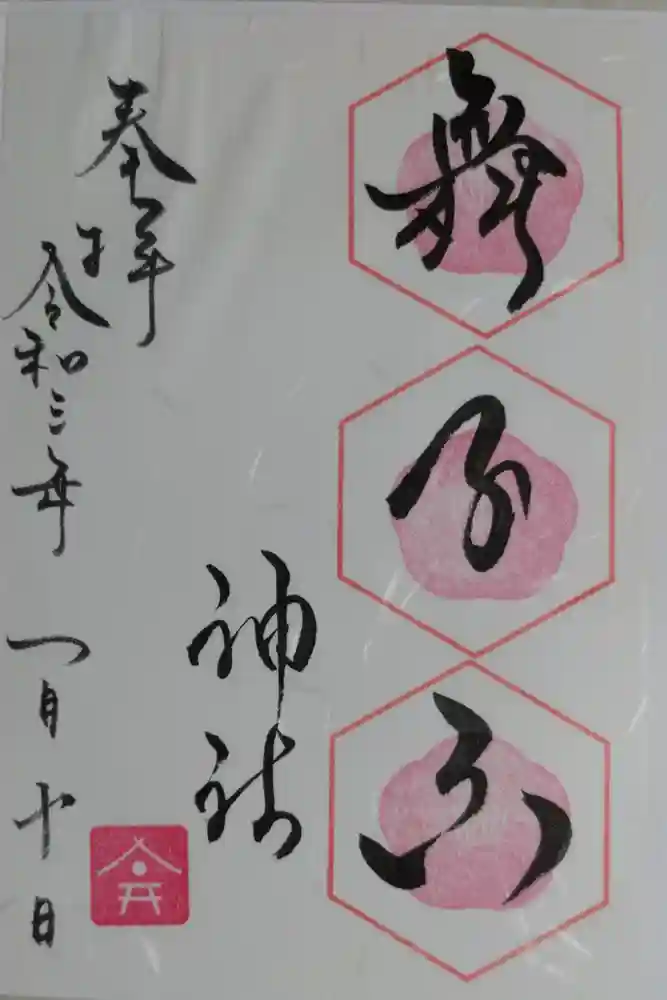 舞子六
神社
奉拝
于
令和三年
一月十日